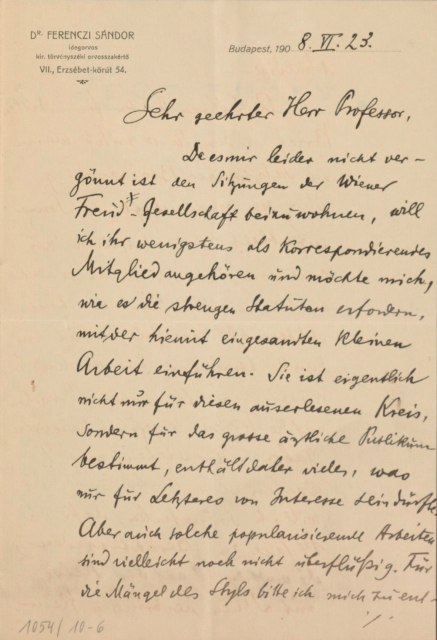 Dr. FERENCZI SÁNDOR
idegorvos
kir. törvényszéki orvosszakértő
VII., Erzsébet-körút 54.
Budapest, 190 8. VI. 23.
Sehr geehrter Herr Professor,
Da es mir leider nicht ver-
gönnt ist den Sitzungen der Wiener
Freud-Gesellschaft beizuwohnen, will
ich ihr wenigstens als Korrespondierendes
Mitglied angehören und möchte mich,
wie es die strengen Statuten erfordern,
mit der hiemit eingesandten kleinen
Arbeit einführen. Sie ist eigentlich
nicht nur für diesen auserlesenen Kreis,
sondern für das grosse ärztliche Publikum
bestimmt, enthält daher vieles, was
nur für Letzteres von Interesse sein dürfte.
Aber auch solche popularisierende Arbeiten
sind vielleicht noch nicht überflüßig. Für
die Mängel des Styls bitte ich mich zu ent-
./.
1054/10-6